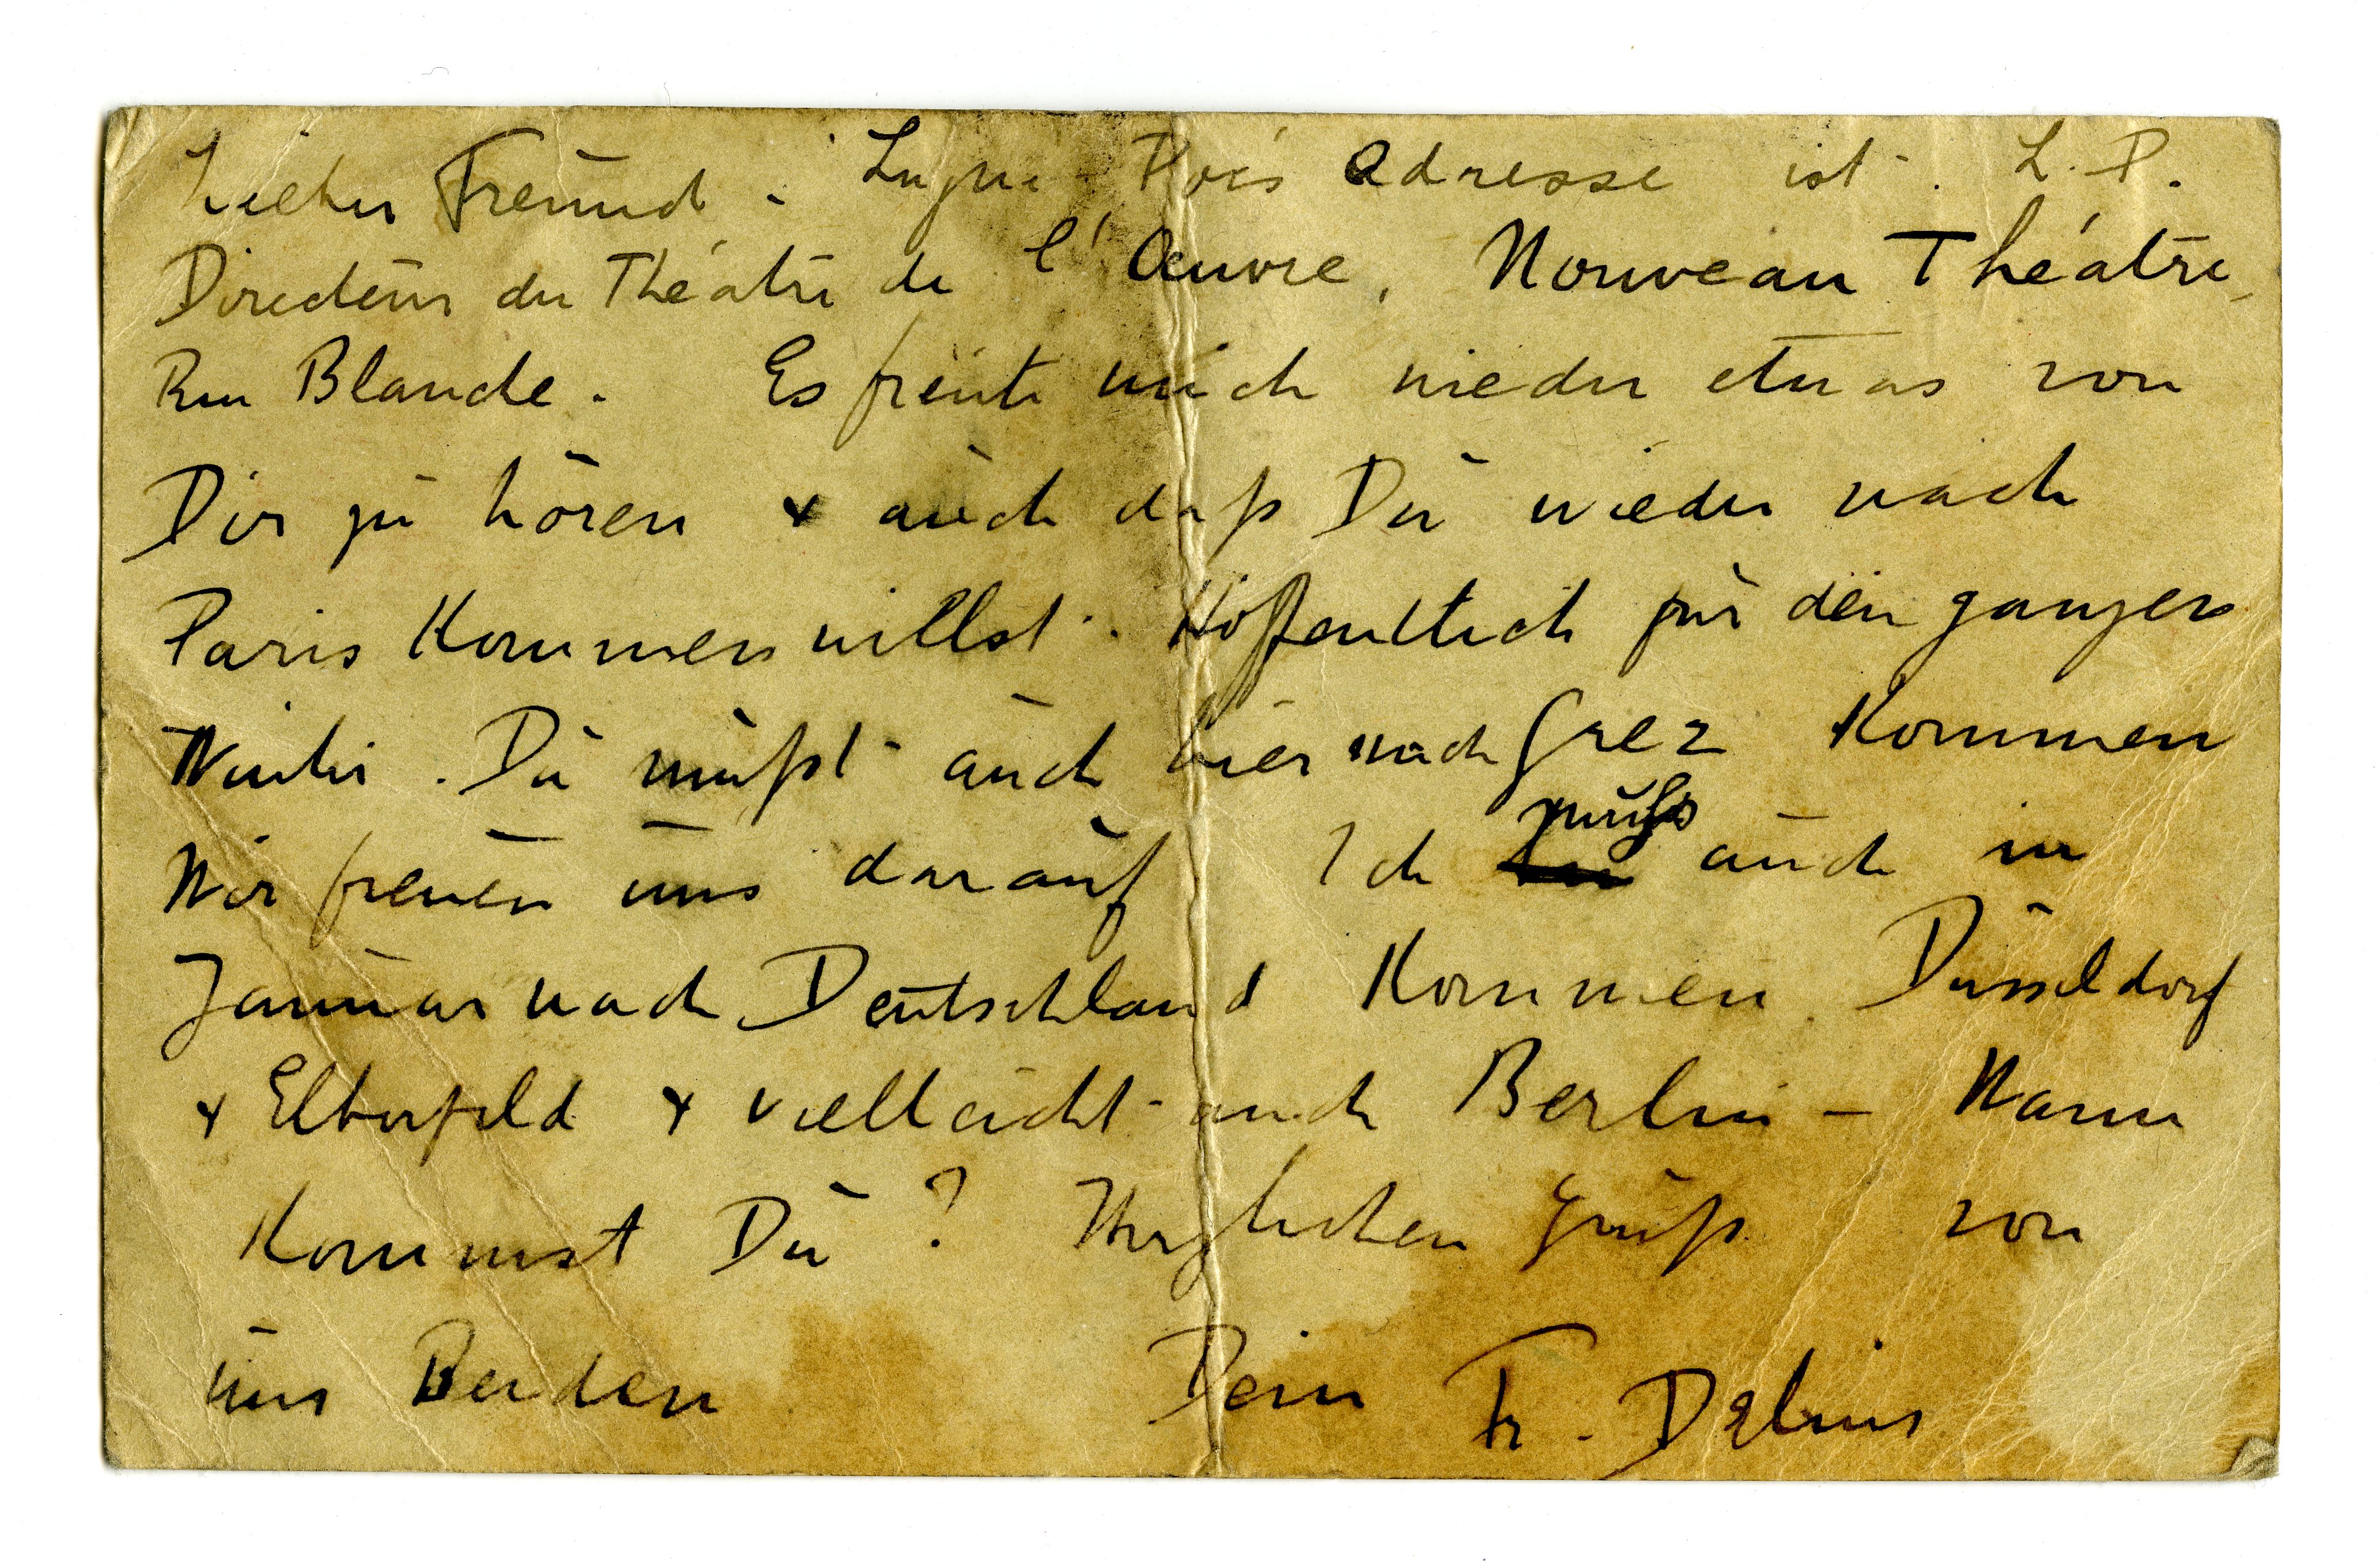 Lieber Freund. Lugné-Poë's adresse ist. L. P.
Directeur du Théatre de l'Oeuvre, Nouveau Théatre,
Rue Blanche. Es freute mich wieder etwas von
Dir zu hören & auch daß Du wieder nach
Paris Kommen willst. Hoffentlich für den ganzen
Winter. Du mußt auch hier nach Grez Kommen
Wir freuen uns darauf Ich muß auch in
Januar nach Deutschland Kommen. Düsseldorf
& Elberfeld & vielleicht auch Berlin — Wann
Kommst Du? Herzlichen Gruß von
uns Beiden Dein Fr. Delius